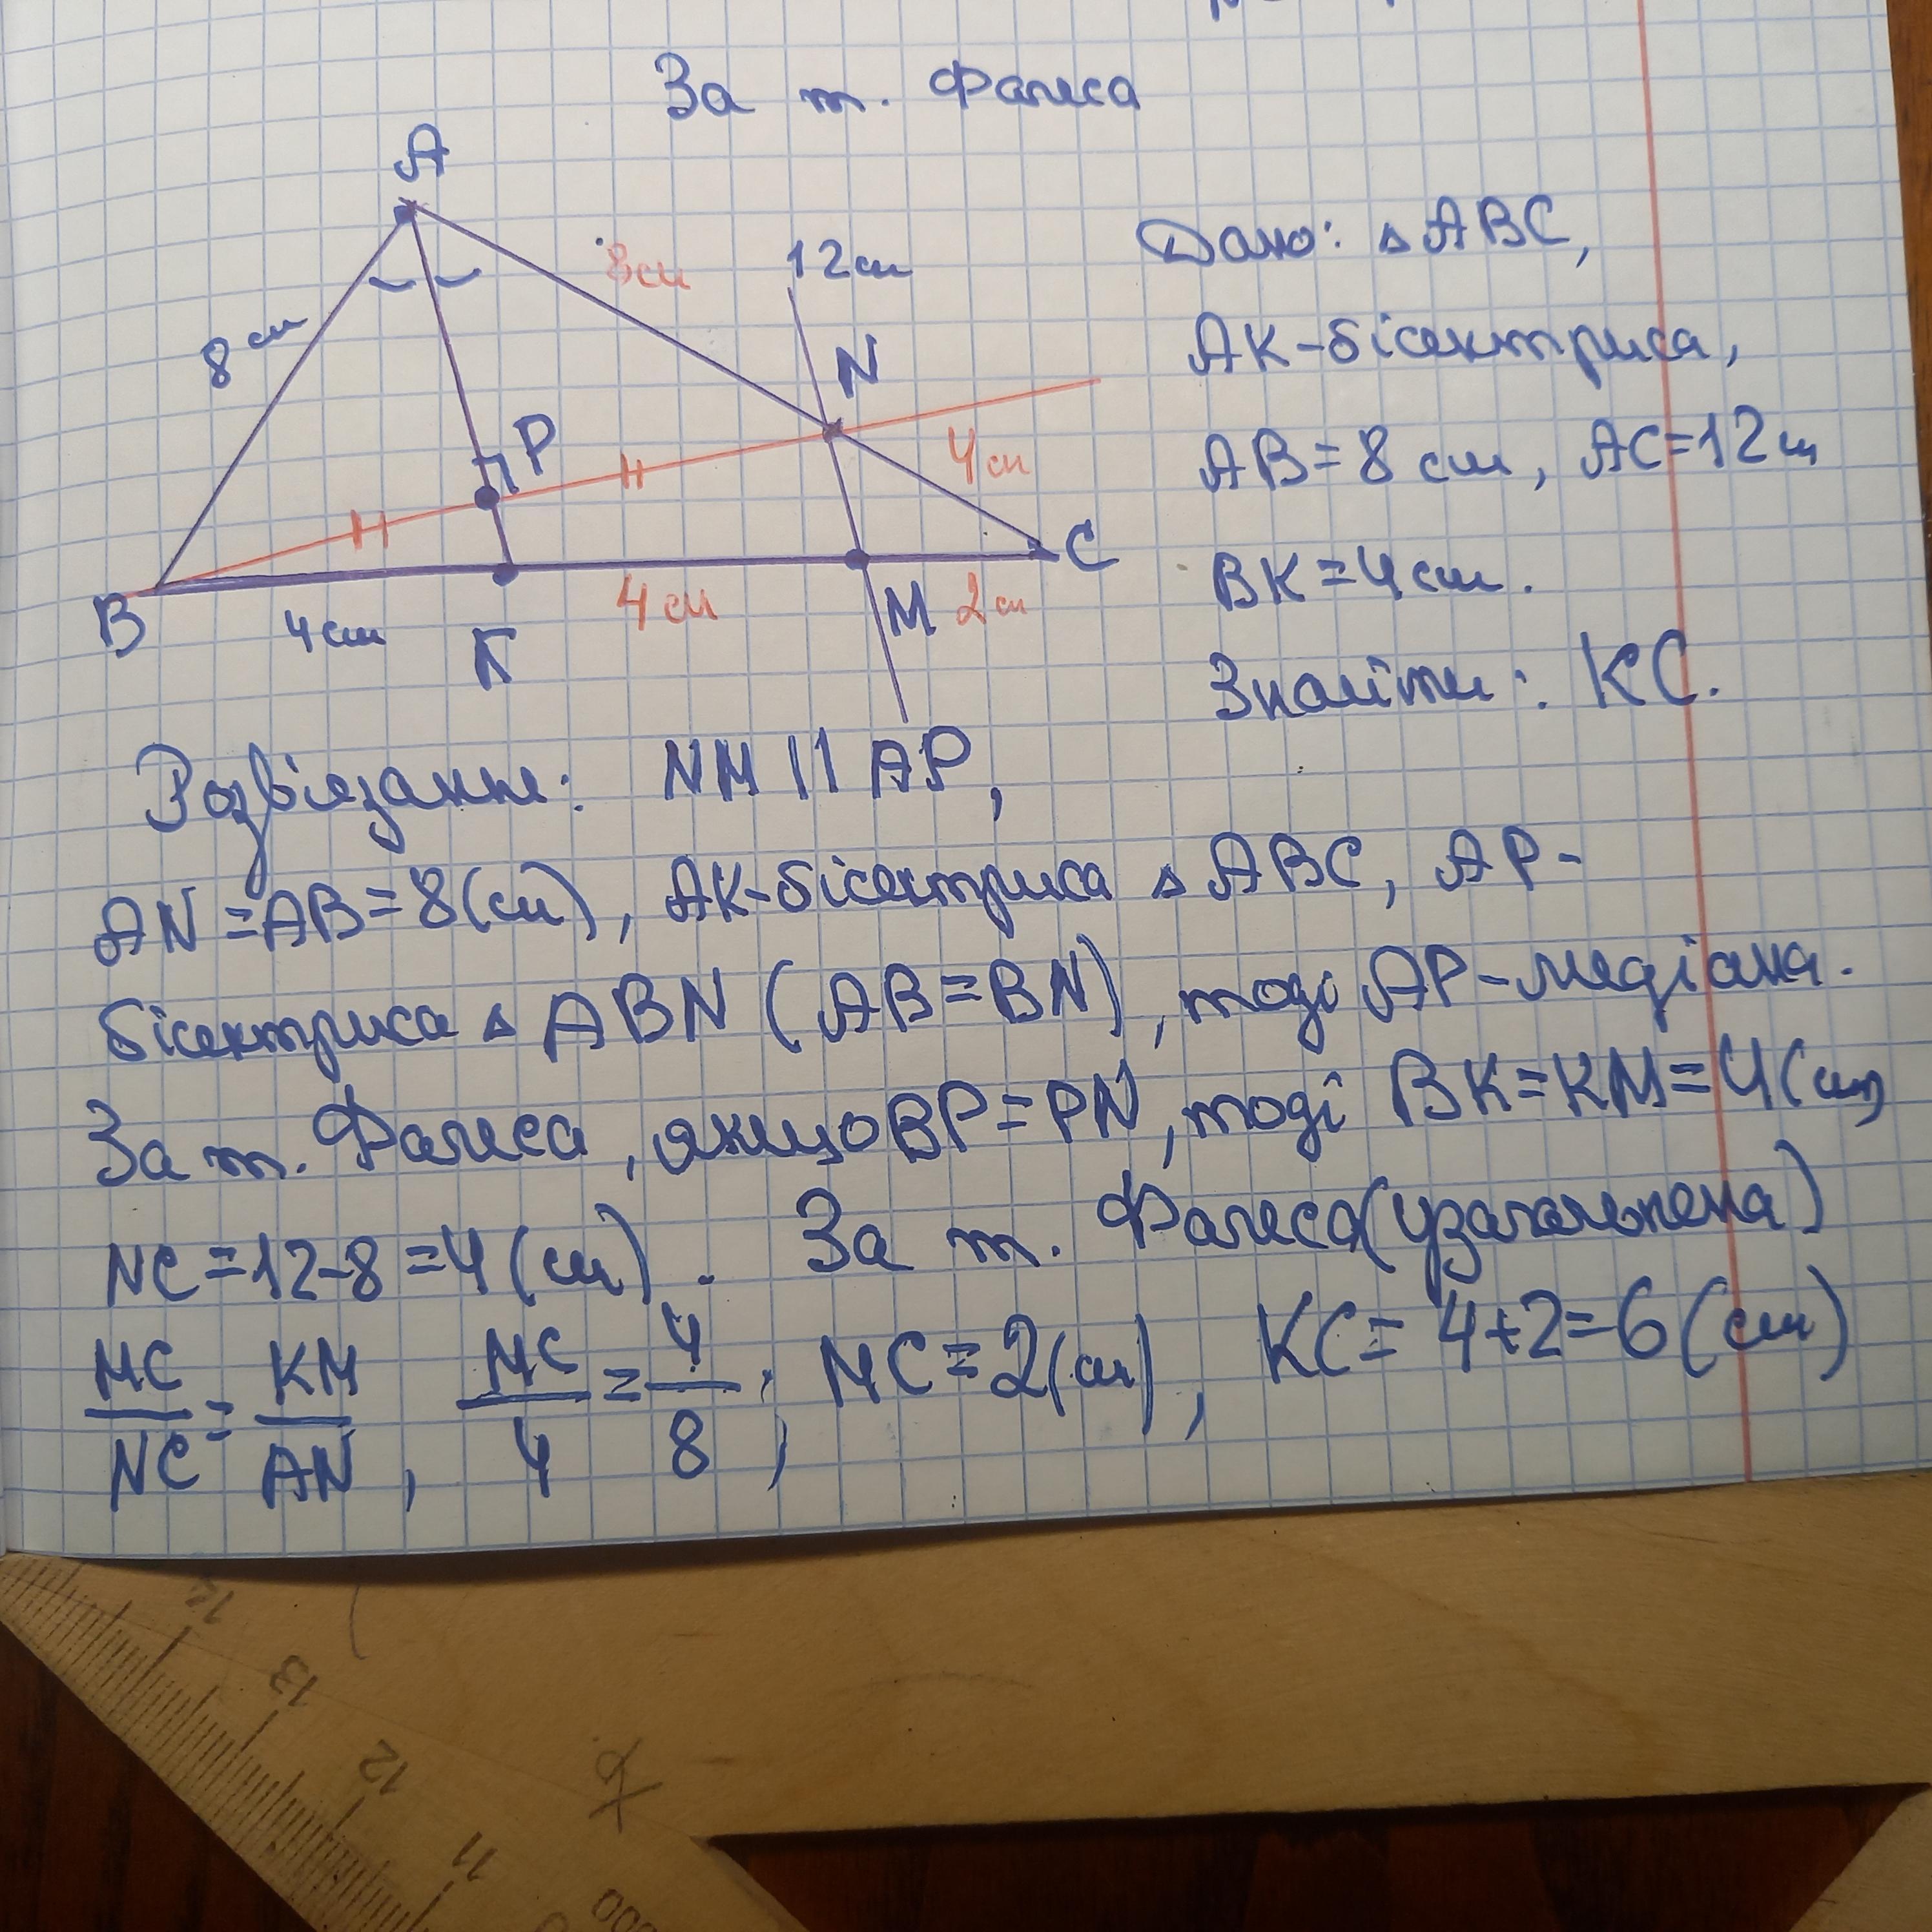 За т. Фалеса
A
8см
12см
8см
N
P
4см
B
4см
K
4см
M
2см
C
Дано: △ABC,
AK-бісектриса,
AB=8 см, AC=12см
BK=4см.
Знайти: KC.
Розв'язання: NM || AP,
AN=AB=8(см), AK-бісектриса △ABC, AP-
бісектриса △ABN (AB=BN), тоді AP-медіана.
За т. Фалеса, якщо BP=PN, тоді BK=KM=4(см)
NC=12-8=4(см). За т. Фалеса(узагальнена)
MC/NC=KM/AN, MC/4=4/8; MC=2(см), KC=4+2=6(см)
14
13
12
11